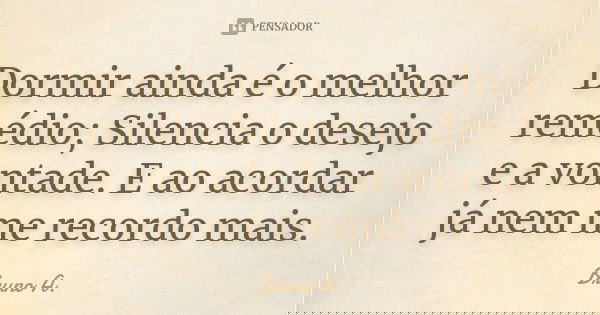 PENSADOR
Dormir ainda é o melhor
remédio; Silencia o desejo
e a vontade. E ao acordar
já nem me recordo mais.
Bruno A.